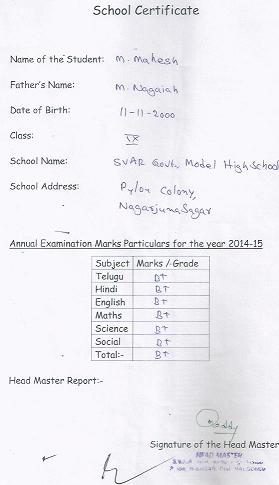 School Certificate
Name of the Student: M. Mahesh
Father's Name: M. Nagaiah
Date of Birth: 11-11-2000
Class: IX
School Name: SVAR Govt. Model High School
School Address: Pylon Colony,
Nagarjuna Sagar
Annual Examination Marks Particulars for the year 2014-15
Subject Marks / Grade
Telugu B+
Hindi B+
English B+
Maths B+
Science B+
Social B+
Total:- B+
Head Master Report:-
Signature of the Head Master
HEAD MASTER